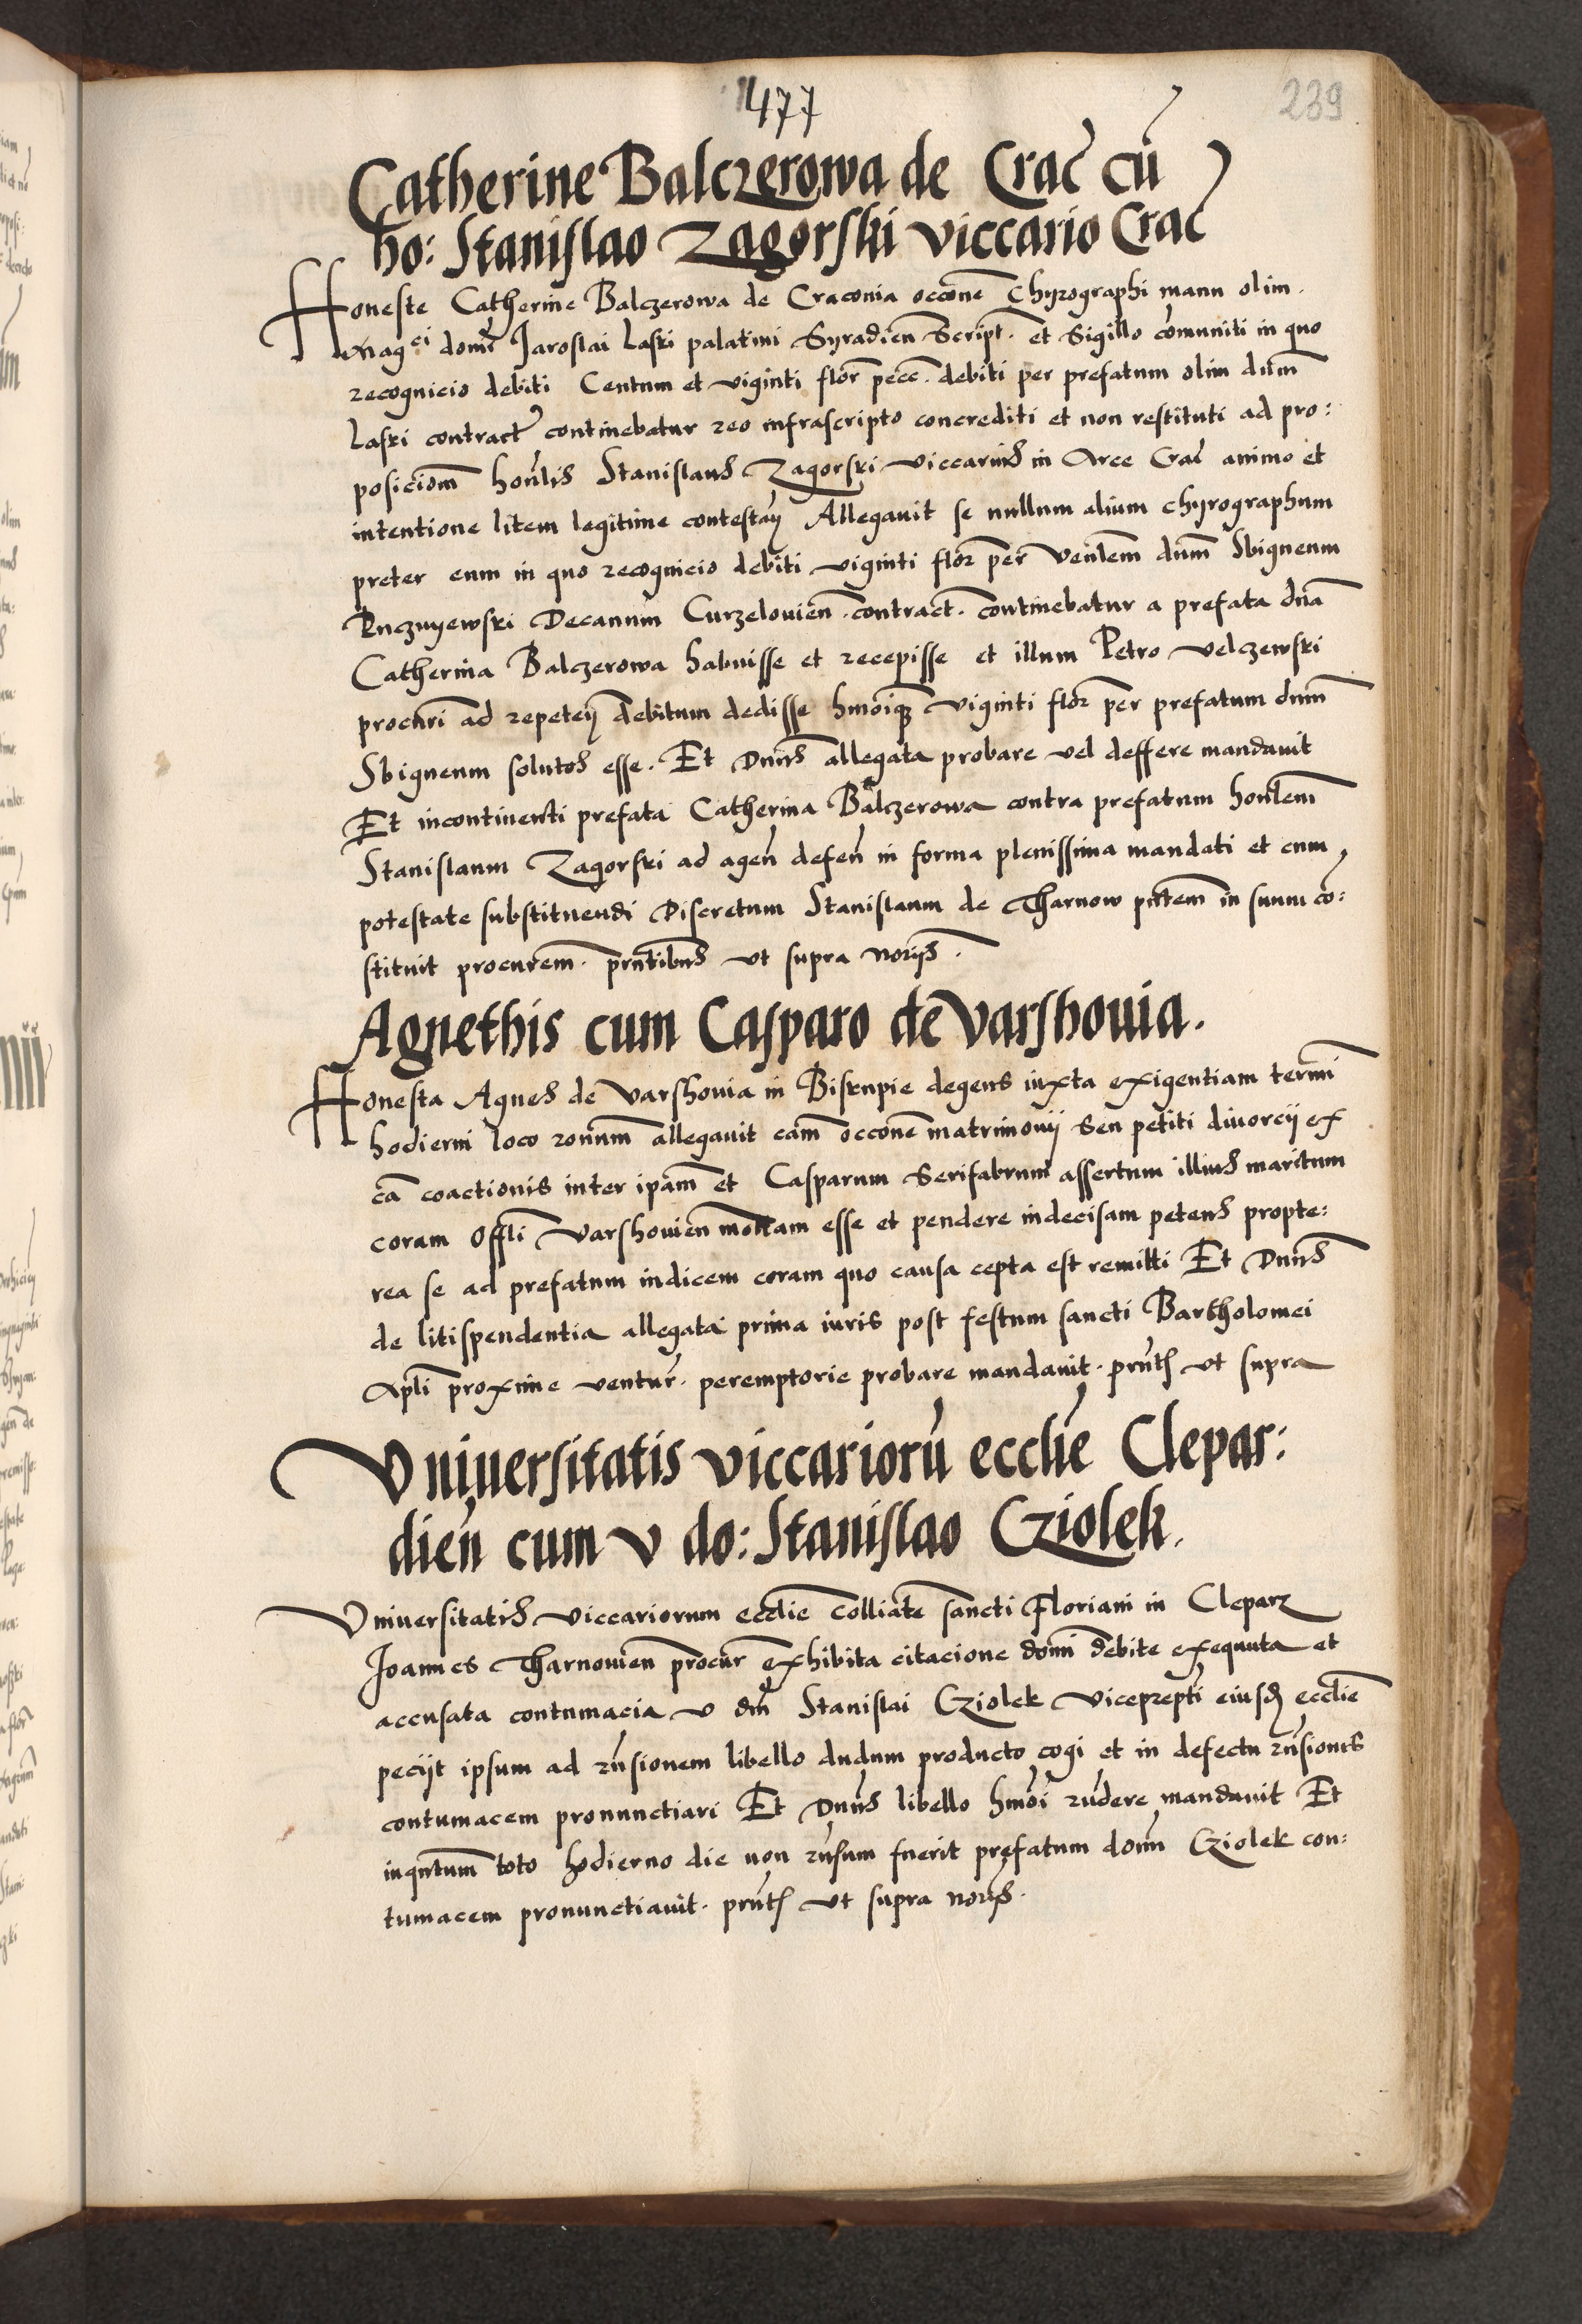 477
239
Catherine Balczerowa de Crac̄ cū
ho: Stanislao Zagorski viccario Crac̄
Honeste Catherine Balczerowa de Craconia occōne Chyrographi manu olim
Magci domī Jaroslai Laski palatini Syradieñ Script. et Sigillo cōmuniti in quo
recognicio debiti Centum et viginti flor̄ pecc̄. debiti per prefatum olim dnm̄
Laski contract̄ continebatur reo infrascripto concrediti et non restituti ad pro:
posiciōm honlis Stanislaus Zagorski viccarius in Arce Crac̄ animo et
intentione litem legitime contestan̄ Allegauit se nullum alium chyrographum
preter eum in quo recognicio debiti viginti flor̄ per Venlem̄ dnm̄ Sbigneum
Decanum Curzelouień. contract. continebatur a prefata dnā
Catherina Balczerowa habuisse et recepisse et illum Petro velczewski
procur̄i ad repeteñ debitum dedisse hmōiq; viginti flor̄ per prefatum dnm̄
Sbigneum solutos esse. Et Dnus allegata probare vel deffere mandauit
Et incontinenti prefata Catherina Balczerowa contra prefatum honlem̄
Stanislaum Zagorski ad ageñ defeñ in forma plenissima mandati et cum
potestate substituendi Discretum Stanislaum de Tharnow pñtem in suum cō:
stituit procurem̄. pñtibus vt supra noriis.
Agnethis cum Casparo de varshouia.
Honesta Agnes de varshouia in Biskupie degens iuxta exigentiam termī
hodierni loco ronum̄ allegauit cam̄ occōne matrimonij seu petiti diuorcij ex
cā coactionis inter ipam̄ et Casparum Serifabrum assertum illius maritum
coram Offli varshouień motam esse et pendere indecisam petens propte:
rea se ad prefatum iudicem coram quo causa cepta est remitti Et Dnus
de litispendentia allegata prima iuris post festum sancti Bartholomei
Apli proxime ventur̄. peremptorie probare mandauit. pñt vt supra
Vniuersitatis viccariorū ecclie Clepar:
dień cum v do: Stanislao Cziolek.
Vniuersitatis viccariorum ecclie colliate sancti Floriani in Cleparz
Joannes Tharnouień procur̄ exhibita citacione domī debite exequuta et
accusata contumacia v dnī Stanislai Cziolek viceprepti eiusd ecclie
peciit ipsum ad rnsionem libello dudum producto cogi et in defectu rnsionis
contumacem pronunctiari Et Dnus libello hmōi rndere mandauit Et
inqntum toto hodierno die non rnsum fuerit prefatum domn̄ Cziolek con:
tumacem pronunctiauit. pñt vt supra noriis.